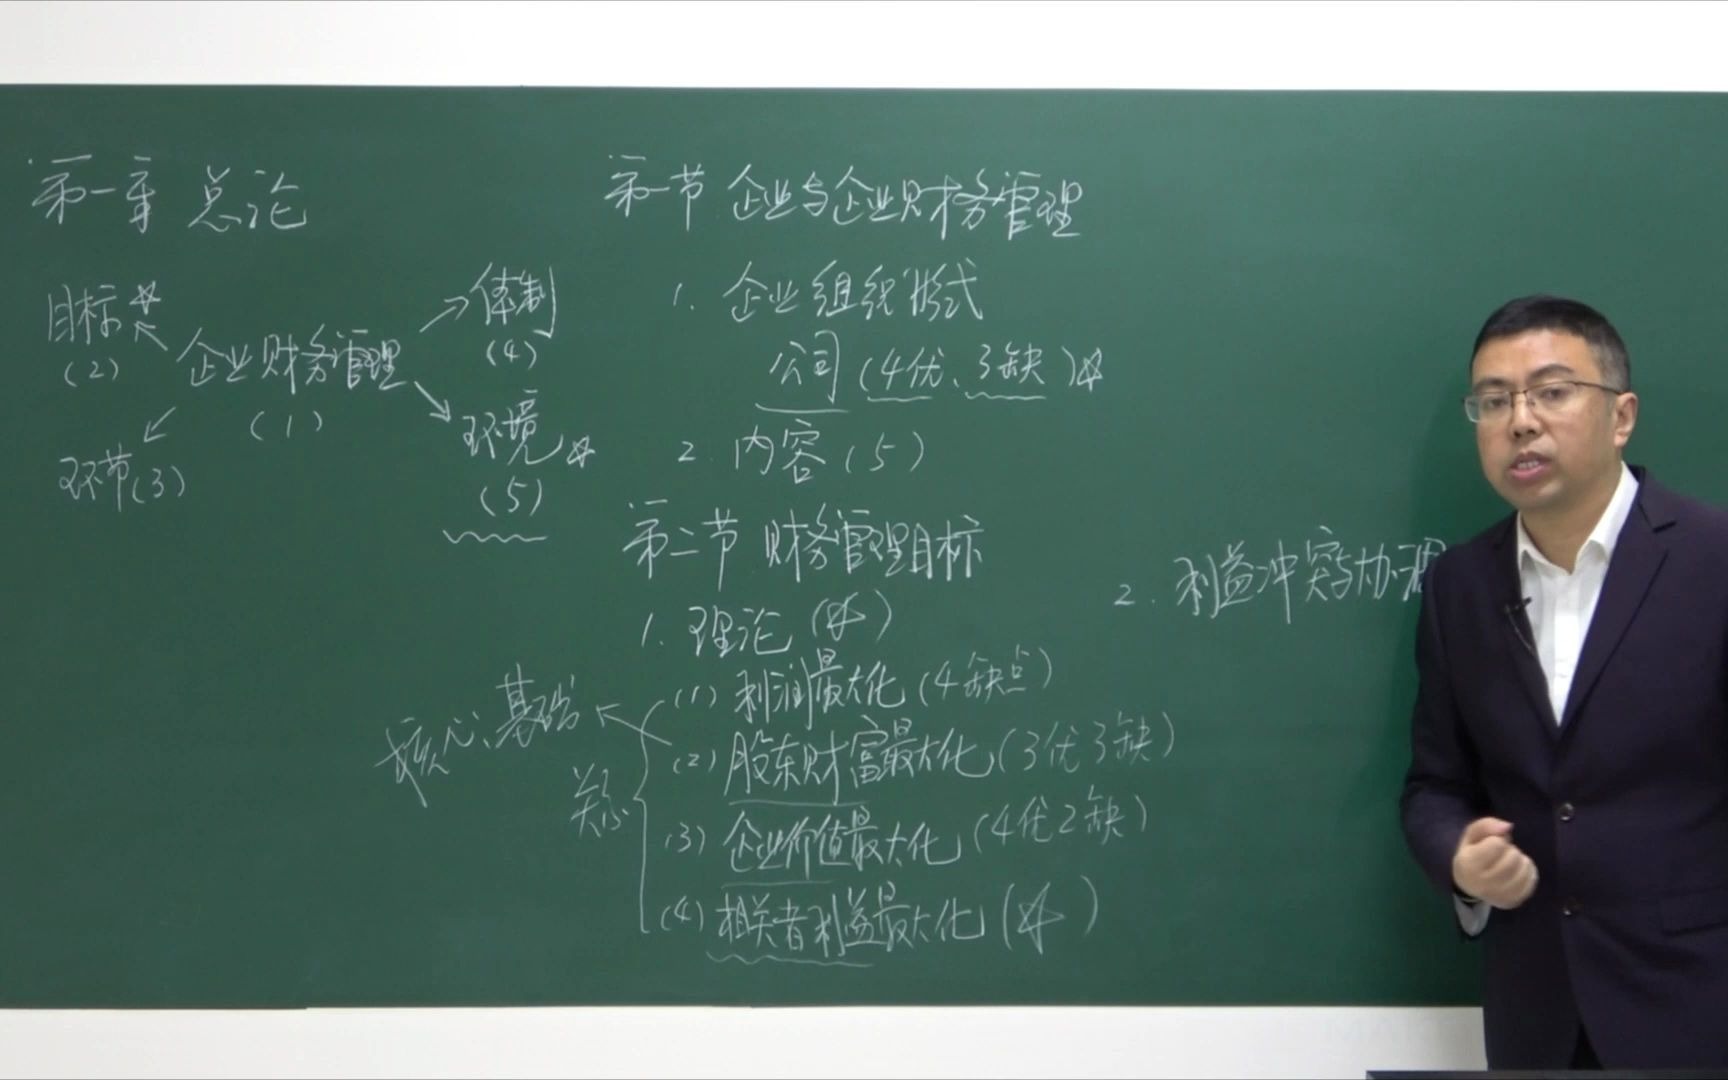 第一章 总论
目标☆
(2)
企业财务管理
(1)
体制
(4)
环节(3)
环境☆
(5)
第一节 企业与企业财务管理
1. 企业组织形式
公司(4优、3缺)☆
2. 内容(5)
第二节 财务管理目标
1. 理论(☆)
核心、基础
关系
(1) 利润最大化(4缺点)
(2) 股东财富最大化(3优3缺)
(3) 企业价值最大化(4优2缺)
(4) 相关者利益最大化(☆)
2. 利益冲突与协调